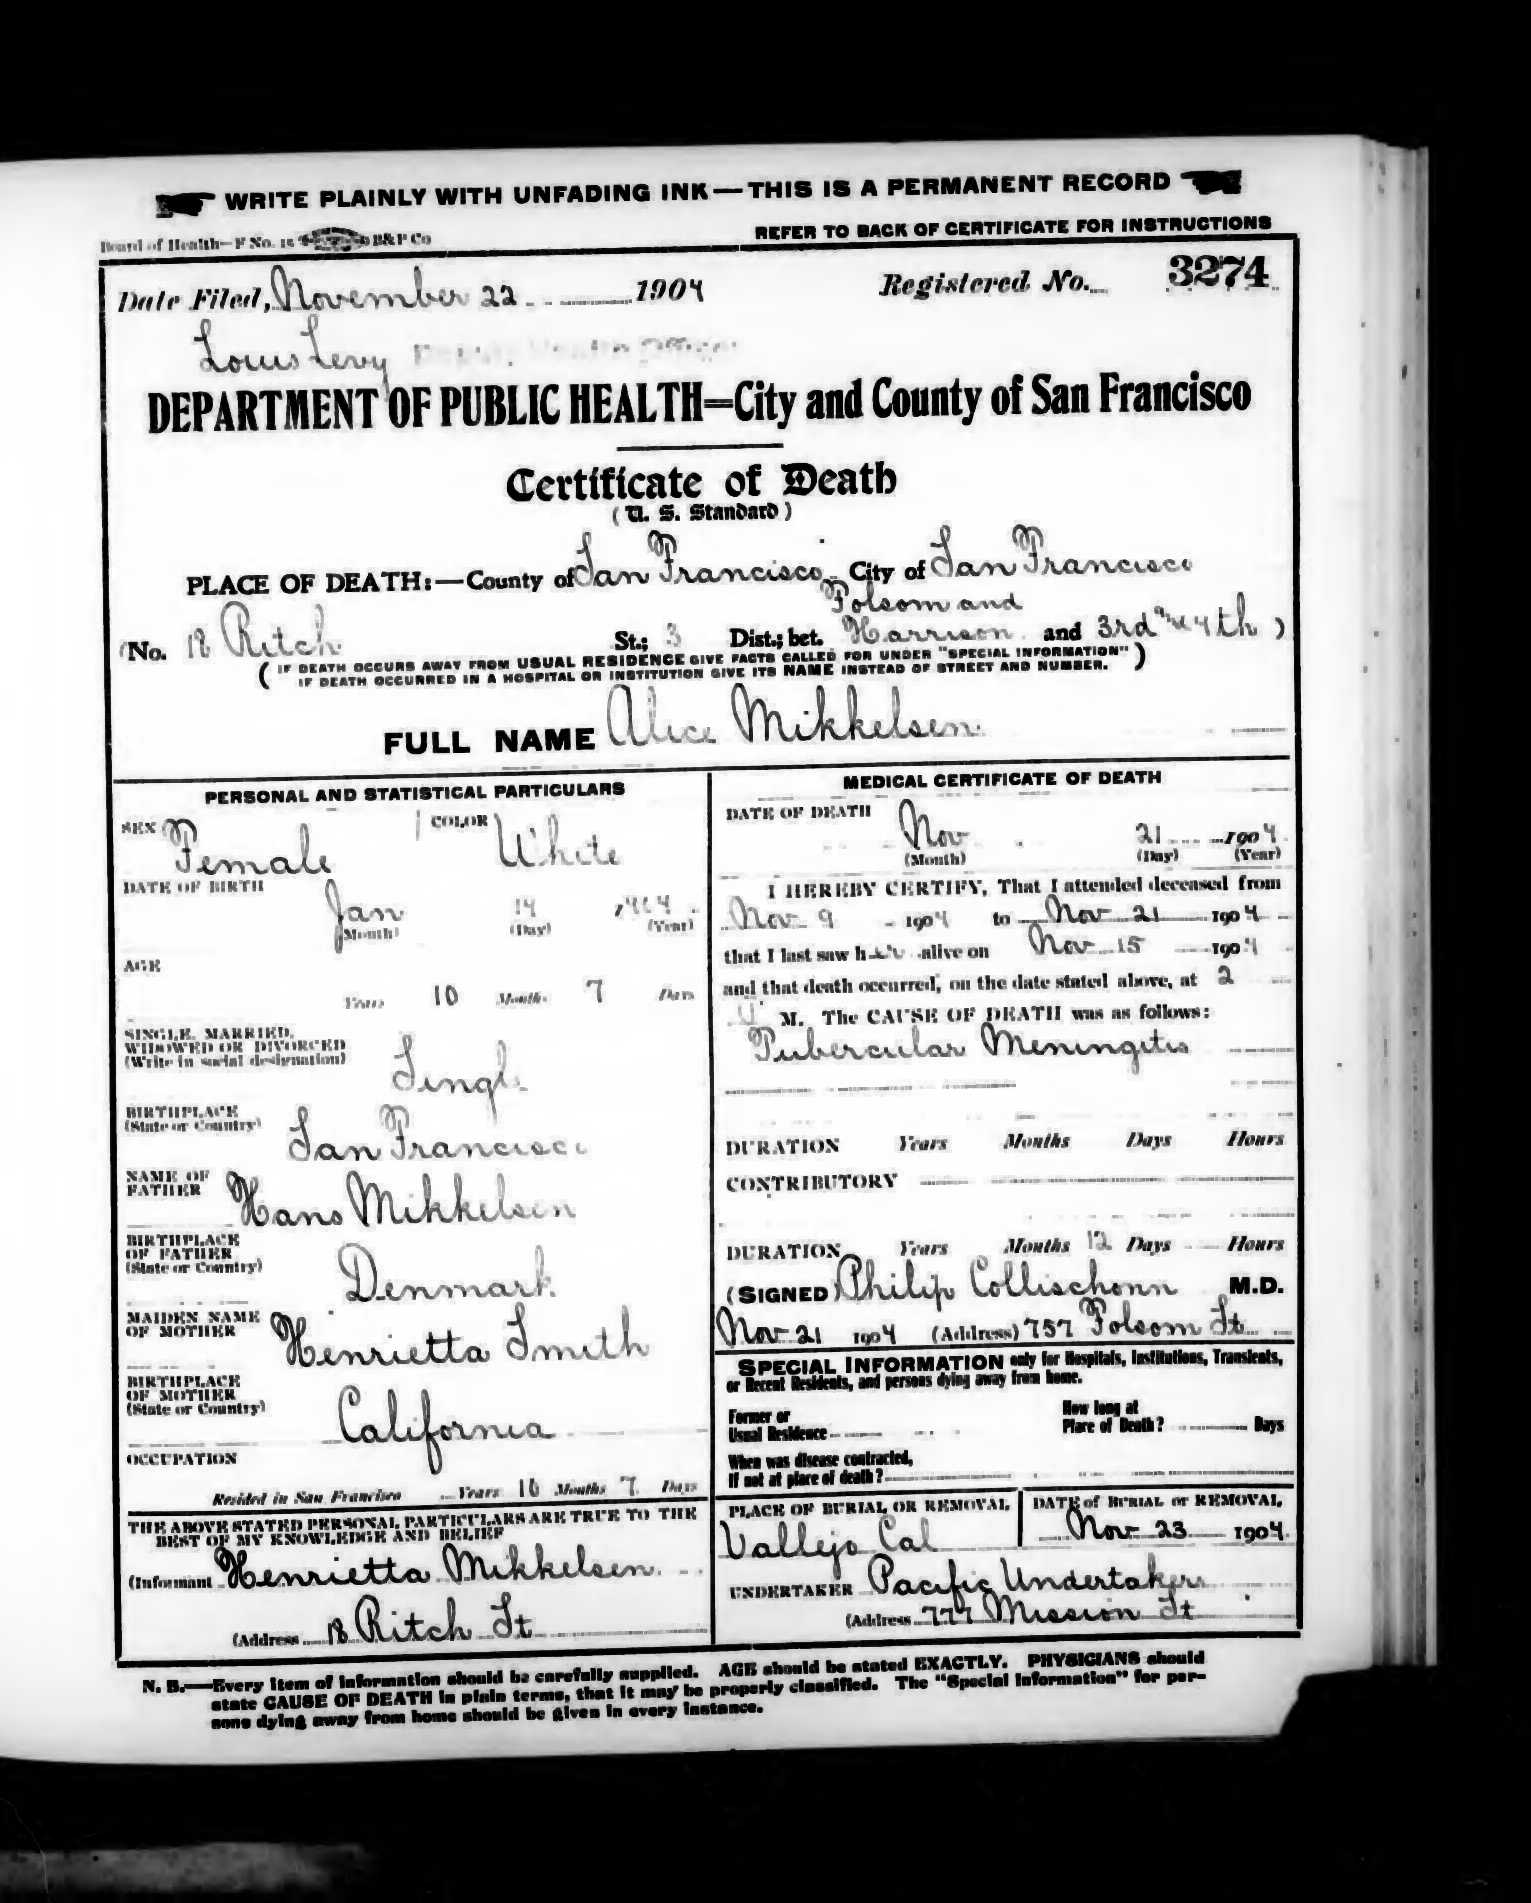 WRITE PLAINLY WITH UNFADING INK—THIS IS A PERMANENT RECORD
Board of Health—F No. 15 B&P Co
REFER TO BACK OF CERTIFICATE FOR INSTRUCTIONS
Date Filed, November 22 1904 Registered No. 3274
Louis Levy Deputy Health Officer
DEPARTMENT OF PUBLIC HEALTH=City and County of San Francisco
Certificate of Death
(U. S. Standard)
PLACE OF DEATH:—County of San Francisco City of San Francisco
Folsom and
(No. 18 Ritch St.; 3 Dist.; bet. Harrison and 3rd and 4th)
(IF DEATH OCCURS AWAY FROM USUAL RESIDENCE GIVE FACTS CALLED FOR UNDER "SPECIAL INFORMATION"
IF DEATH OCCURRED IN A HOSPITAL OR INSTITUTION GIVE ITS NAME INSTEAD OF STREET AND NUMBER.)
FULL NAME Alice Mikkelsen
PERSONAL AND STATISTICAL PARTICULARS
SEX Female COLOR White
DATE OF BIRTH
Jan 14 1904
(Month) (Day) (Year)
AGE
Years 10 Months 7 Days
SINGLE, MARRIED,
WIDOWED OR DIVORCED
(Write in social designation)
Single
BIRTHPLACE
(State or Country)
San Francisco
NAME OF
FATHER
Hans Mikkelsen
BIRTHPLACE
OF FATHER
(State or Country)
Denmark
MAIDEN NAME
OF MOTHER
Henrietta Smith
BIRTHPLACE
OF MOTHER
(State or Country)
California
OCCUPATION
Resided in San Francisco Years 10 Months 7 Days
THE ABOVE STATED PERSONAL PARTICULARS ARE TRUE TO THE
BEST OF MY KNOWLEDGE AND BELIEF
(Informant Henrietta Mikkelsen
(Address 18 Ritch St
MEDICAL CERTIFICATE OF DEATH
DATE OF DEATH
Nov 21 1904
(Month) (Day) (Year)
I HEREBY CERTIFY, That I attended deceased from
Nov 9 1904 to Nov 21 1904
that I last saw her alive on Nov 15 1904
and that death occurred, on the date stated above, at 2
M. The CAUSE OF DEATH was as follows:
Tubercular Meningitis
DURATION Years Months Days Hours
CONTRIBUTORY
DURATION Years Months 12 Days Hours
(SIGNED) Philip Collischonn M.D.
Nov 21 1904 (Address) 757 Folsom St
SPECIAL INFORMATION only for Hospitals, Institutions, Transients,
or Recent Residents, and persons dying away from home.
Former or
Usual Residence
How long at
Place of Death? Days
When was disease contracted,
If not at place of death?
PLACE OF BURIAL OR REMOVAL
Vallejo Cal
DATE of BURIAL or REMOVAL
Nov 23 1904
UNDERTAKER Pacific Undertakers
(Address 777 Mission St
N. B.—Every item of information should be carefully supplied. AGE should be stated EXACTLY. PHYSICIANS should
state CAUSE OF DEATH in plain terms, that it may be properly classified. The "Special Information" for per-
sons dying away from home should be given in every instance.